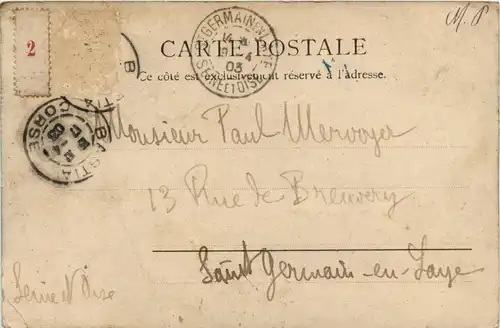 M. P
2
CARTE POSTALE
Ce côté est exclusivement réservé à l'adresse.
ST GERMAIN EN LAYE
4
03
SEINE ET OISE
BASTIA
03
CORSE
Monsieur Paul Mervoyer
13 Rue de Breuvery
Saint Germain-en-Laye
Seine et Oise